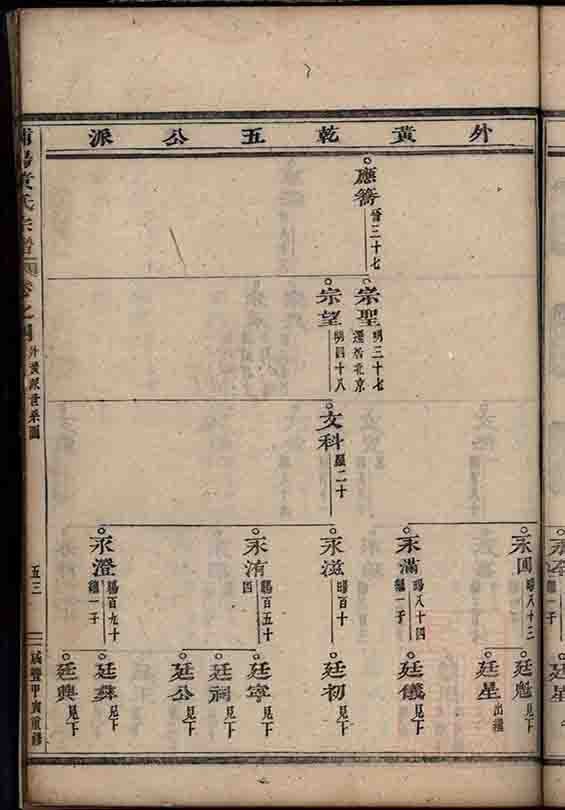 外黃乾五公派
應簹 晉三十七
宗聖 明三十七 遷居北京
宗望 明四十八
文科 二十
永圓 暘八十三
永滿 暘八十四 繼一子
永滋 暘百十
永洧 暘百五十四
永澄 暘百九十 繼一子
廷星
廷魁 見下
廷星 出繼
廷儀 見下
廷初 見下
廷寧 見下
廷祠 見下
廷公 見下
廷蘇 見下
廷興 見下
黃氏宗譜 卷之四 外黃派世系圖
五三
咸豐甲寅重修